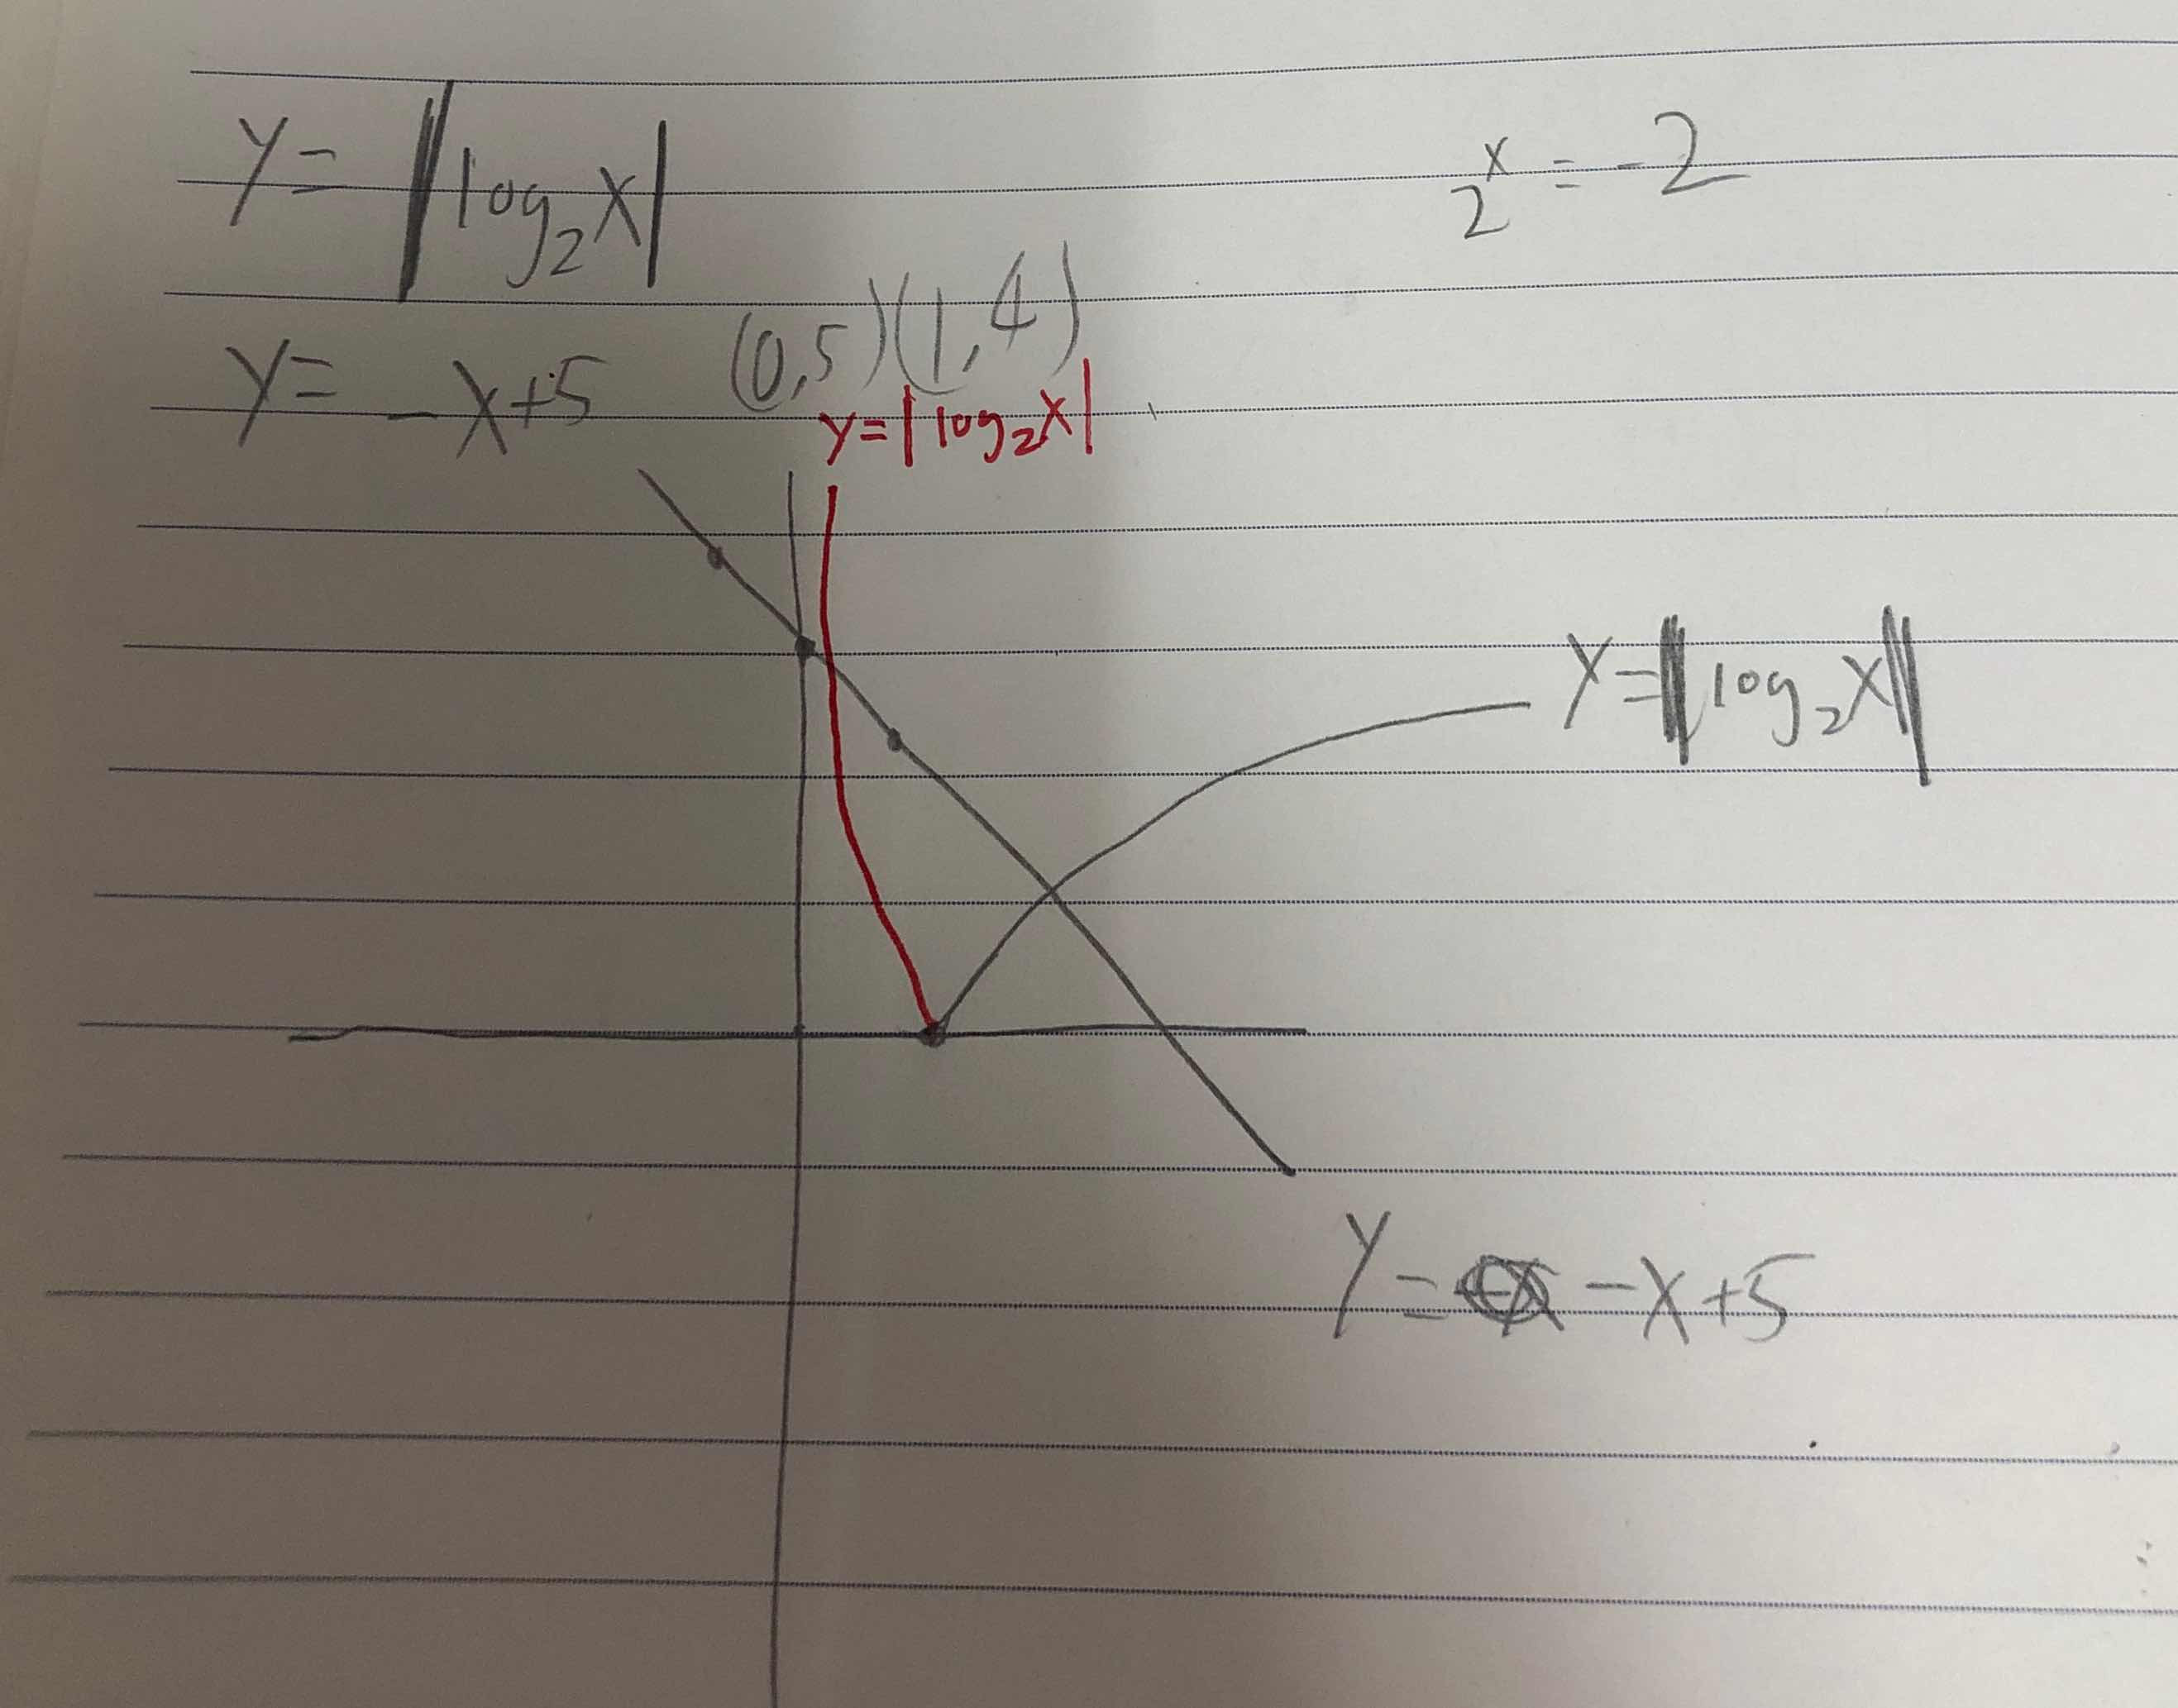 y = |log₂x|
2ˣ = -2
y = -x+5 (0,5)(1,4)
y=|log₂x|
y=|log₂x|
y = -x+5